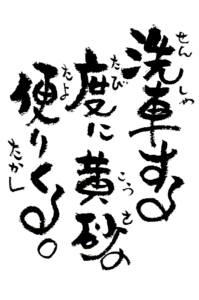 洗車する
度に黄砂の
便りくる。
たかし
せんしゃ
たび
こうさ
たよ